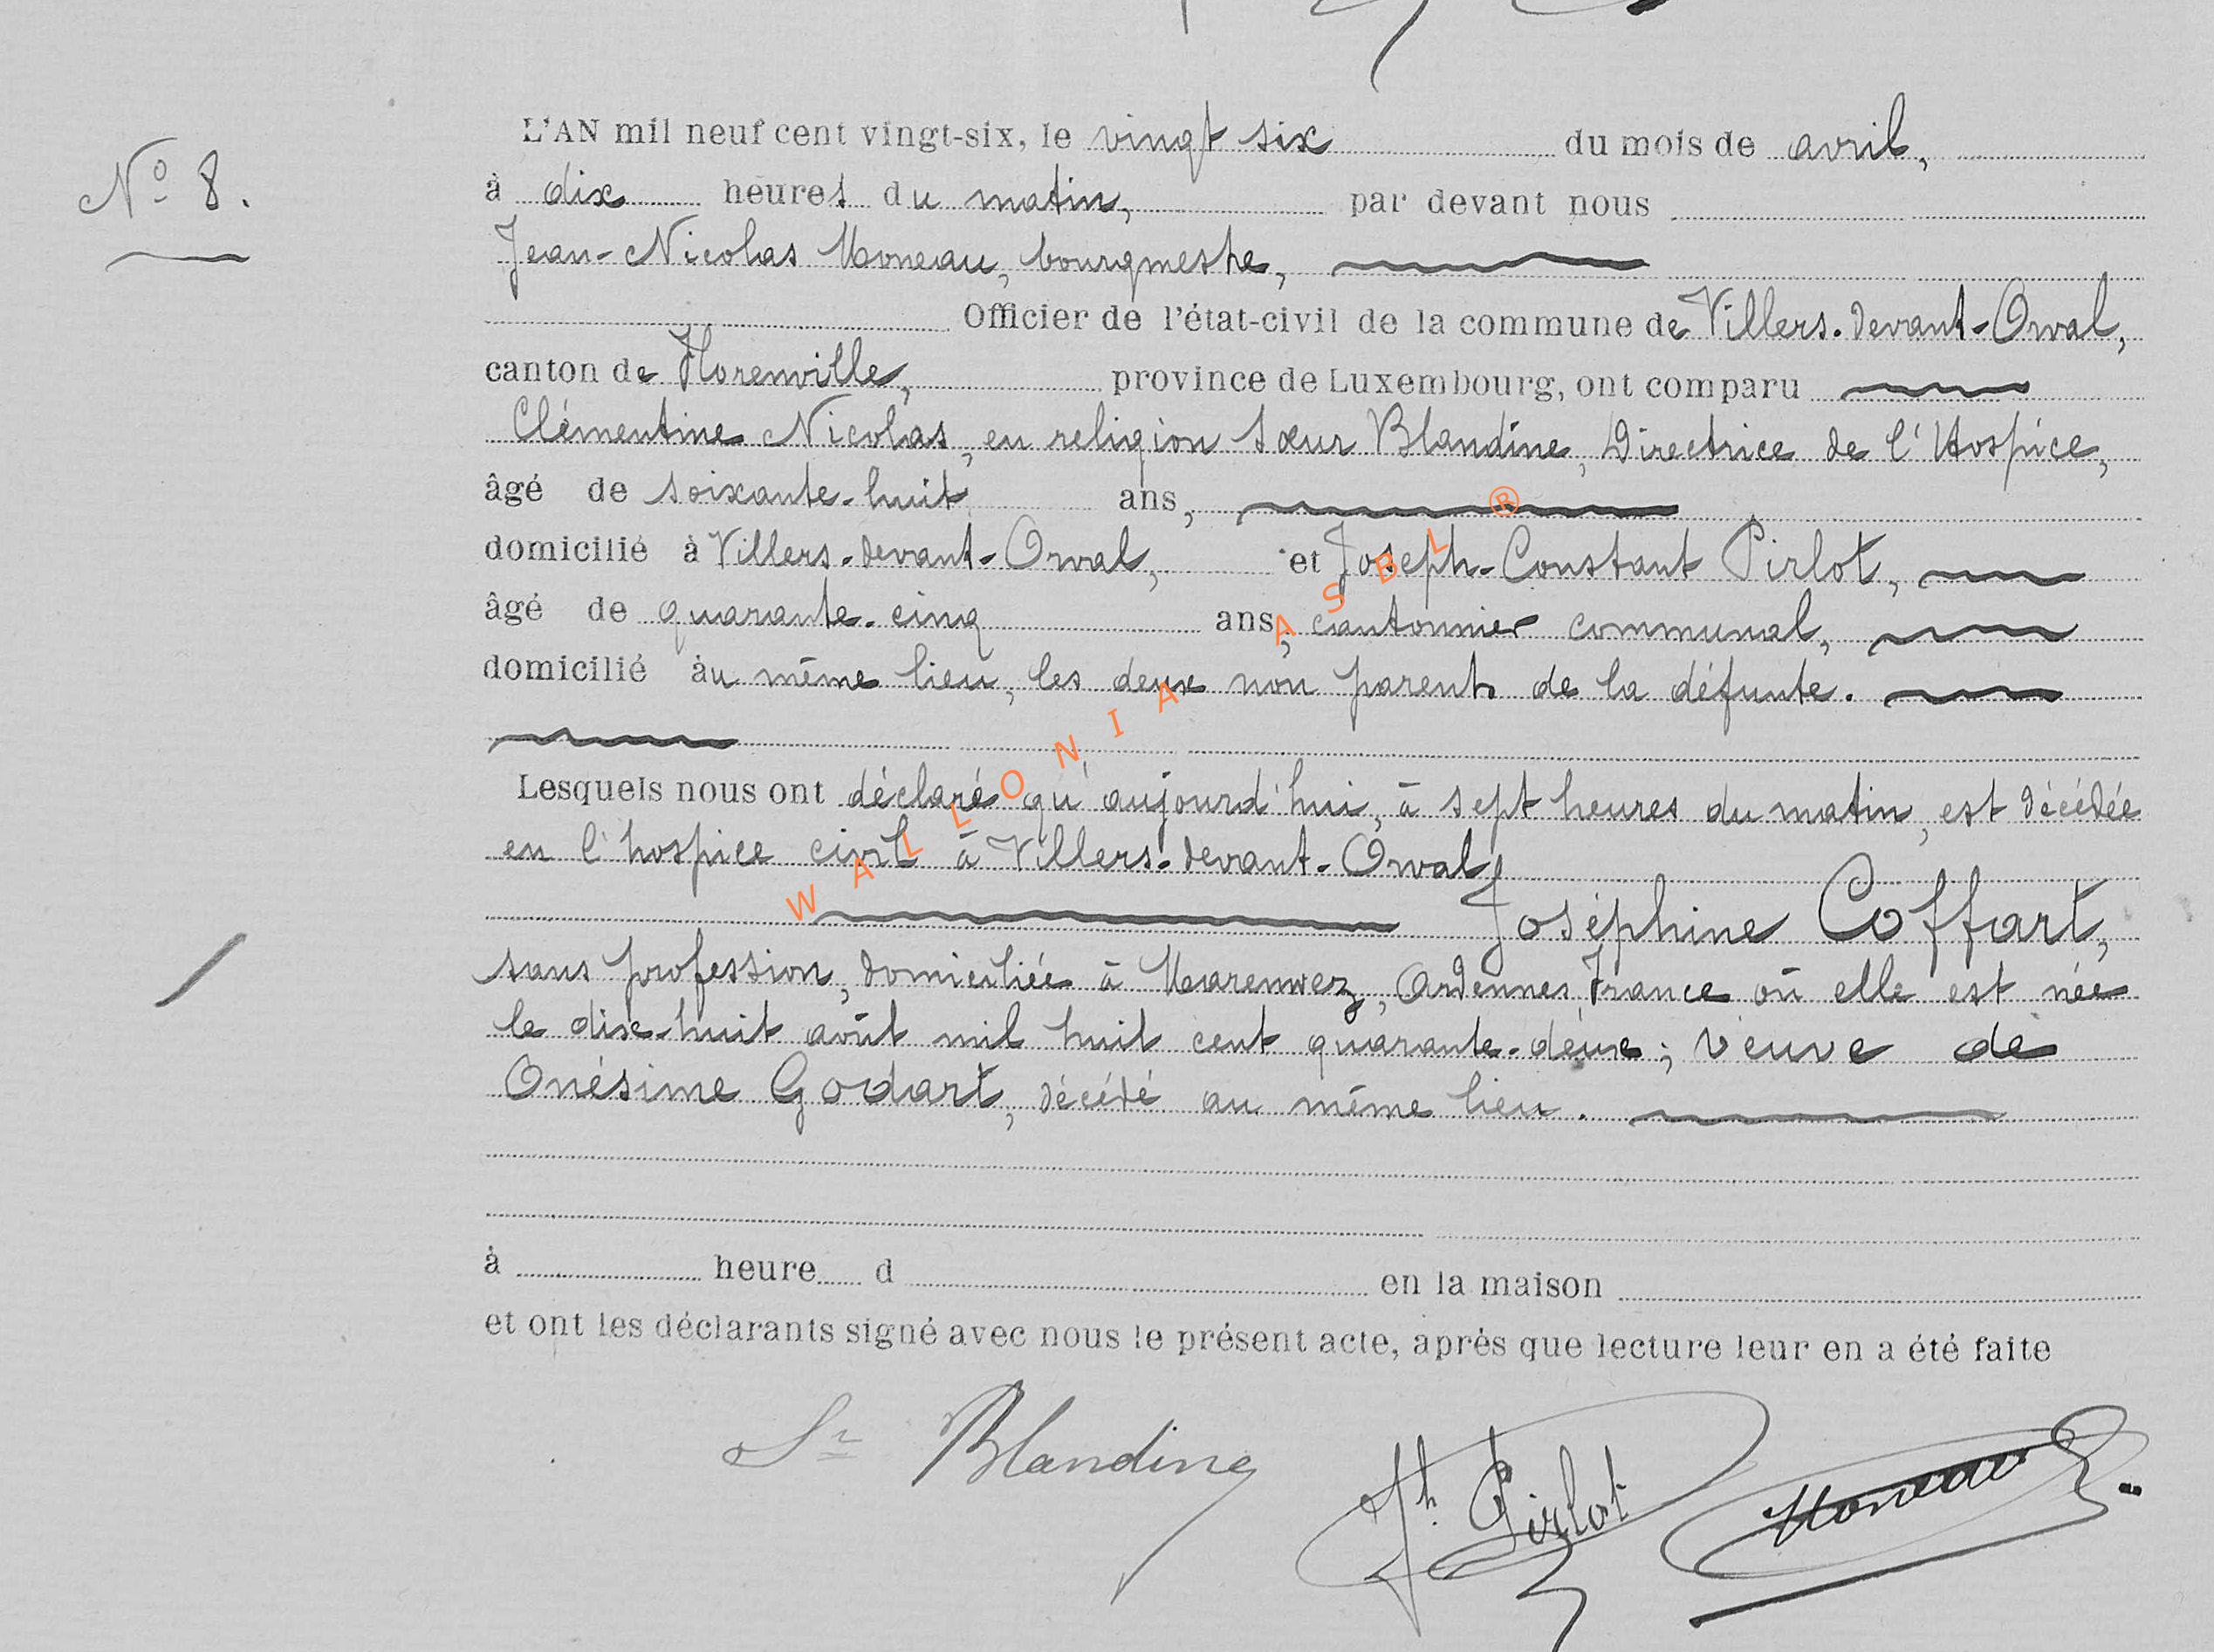 N° 8.
L'AN mil neuf cent vingt-six, le vingt six du mois de avril,
à dix heures du matin, par devant nous
Jean-Nicolas Moneau, bourgmestre,
Officier de l'état-civil de la commune de Villers-devant-Orval,
canton de Florenville, province de Luxembourg, ont comparu
Clémentine Nicolas, en religion sœur Blandine, Directrice de l'Hospice,
âgé de soixante-huit ans,
domicilié à Villers-devant-Orval, et Joseph-Constant Pirlot,
âgé de quarante-cinq ans, cantonnier communal,
domicilié au même lieu, les deux non parents de la défunte.
Lesquels nous ont déclaré qu'aujourd'hui, à sept heures du matin, est décédée
en l'hospice civil à Villers-devant-Orval,
Joséphine Coffart,
sans profession, domiciliée à Maremwez, Ardennes, France où elle est née
le dix-huit août mil huit cent quarante-deux; veuve de
Onésime Godart, décédé au même lieu.
à heure d en la maison
et ont les déclarants signé avec nous le présent acte, après que lecture leur en a été faite
Sr Blandine
Jh. Pirlot Moneau
WALLONIA ASBL ®